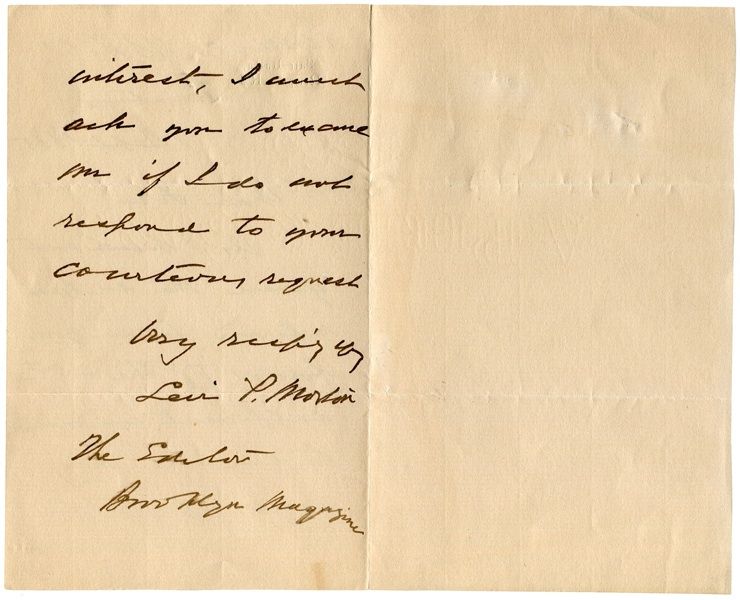 interest, I must
ask you to excuse
me if I do not
respond to your
courteous request
Very resp'y yrs
Levi P. Morton
The Editor
Brooklyn Magazine